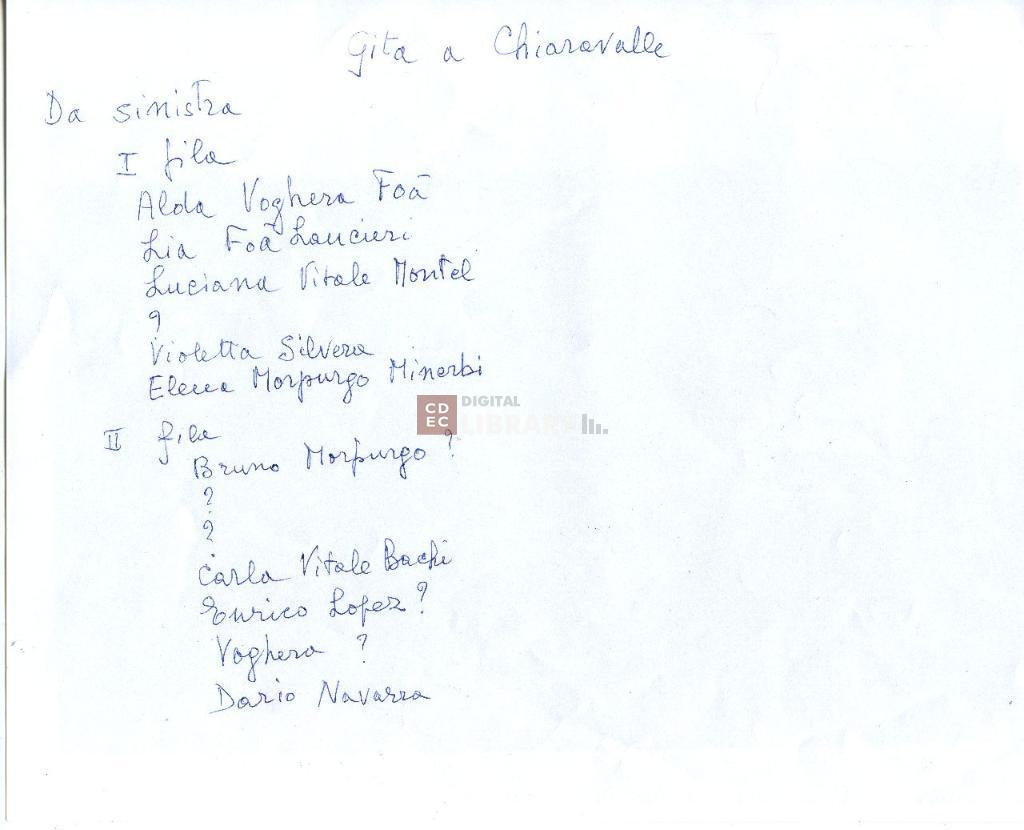 Gita a Chiaravalle
Da sinistra
I fila
Alda Voghera Foà
Lia Foà Lancieri
Luciana Vitale Montel
?
Violetta Silvera
Elena Morpurgo Minerbi
CD EC DIGITAL LIBRARY
II fila
Bruno Morpurgo ?
?
?
Carla Vitale Bachi
Enrico Lopez ?
Voghera ?
Dario Navarra